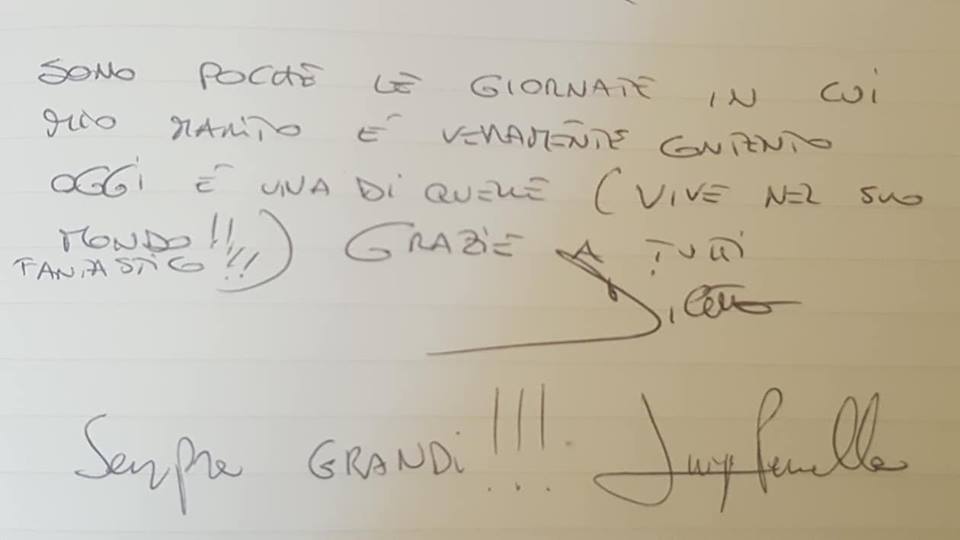 SONO POCHE LE GIORNATE IN CUI
MIO MARITO E' VERAMENTE CONTENTO
OGGI E' UNA DI QUELLE (VIVE NEL SUO
MONDO!!
FANTASTICO!!!) GRAZIE A TUTTI
Sempre GRANDi!!!